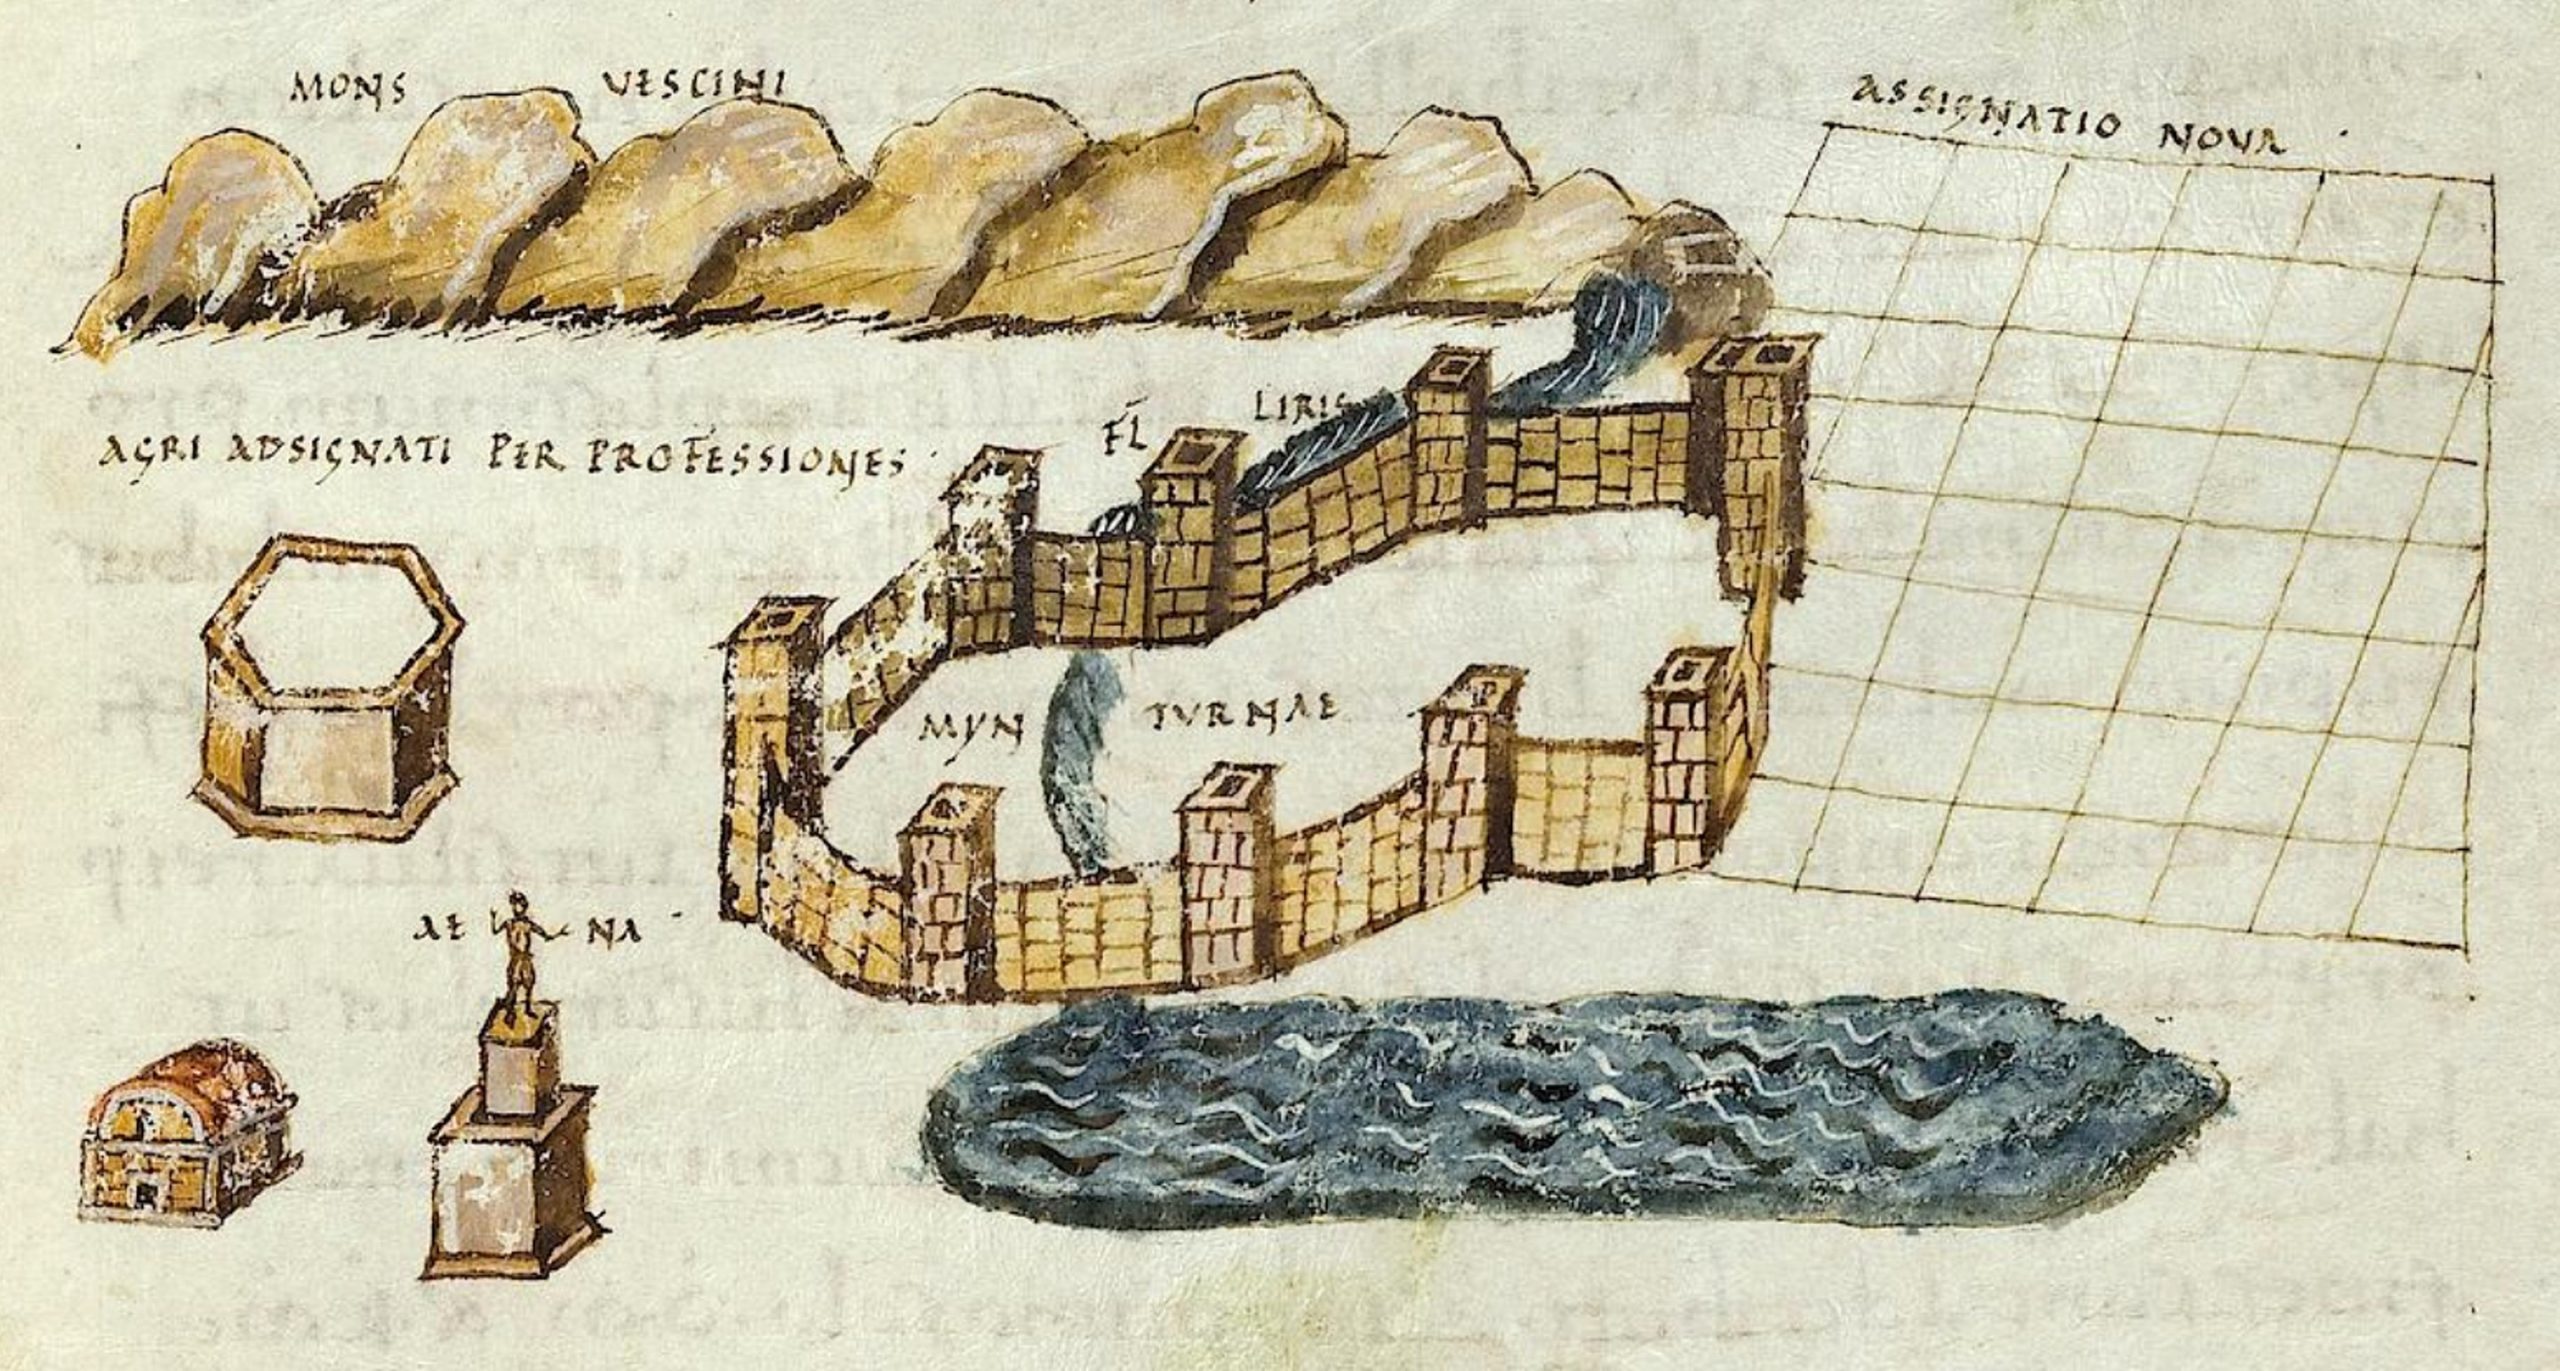 MONS VESCINI
ASSIGNATIO NOVA
FL LIRIS
AGRI ADSIGNATI PER PROFESSIONES
MYN TVRNAE
AE NA